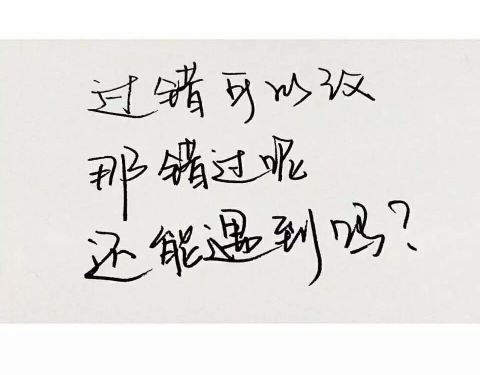 过错可以改
那错过呢
还能遇到吗?